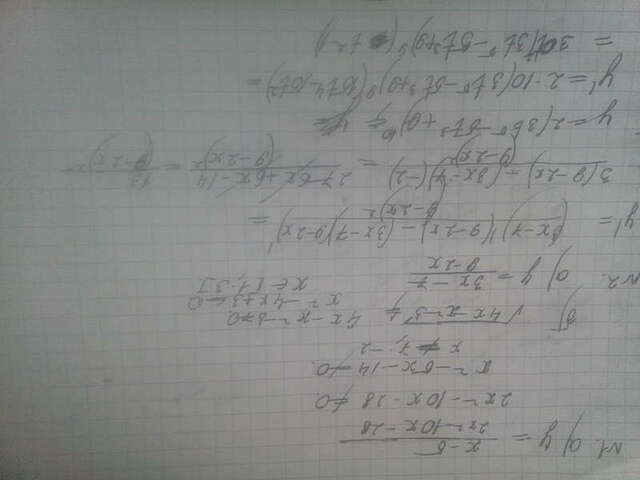 №1. а) y = x-5 / 2x²-10x-28
2x² - 10x - 28 ≠ 0
x² - 5x - 14 ≠ 0
x ≠ 7; -2
б) √4x-x²-3
4x - x² - 3 ≥ 0
x² - 4x + 3 ≤ 0
x ∈ [1; 3]
№2. а) y = 3x-7 / 9-2x
y' = (3x-7)'(9-2x) - (3x-7)(9-2x)' / (9-2x)² =
3(9-2x) - (3x-7)(-2) / (9-2x)² = 27-6x+6x-14 / (9-2x)² = 13 / (9-2x)²
y = 2(3t⁵ - 5t³ + 9)
y' = 2·10(3t⁵ - 5t³ + 9)⁹ (15t⁴ - 15t²) =
= 30t²(3t⁵ - 5t³ + 9)⁹ (t² - 1)